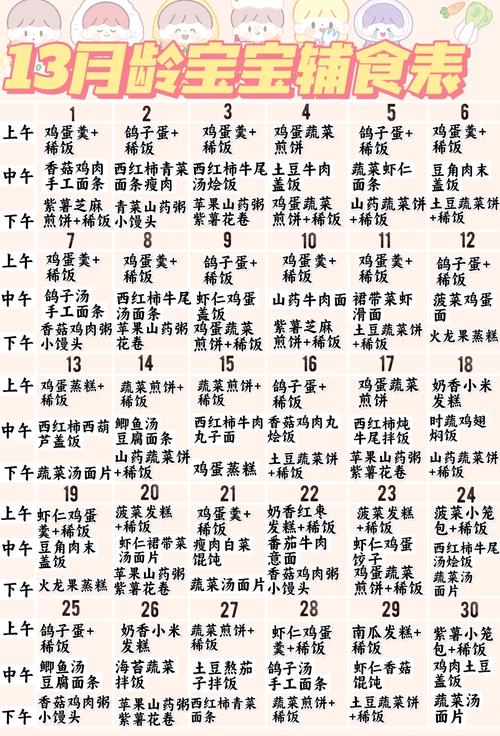 13月龄宝宝辅食表
1 2 3 4 5 6
上午 鸡蛋羹+稀饭 鸽子蛋+稀饭 鸡蛋羹+稀饭 鸡蛋蔬菜煎饼 鸽子蛋+稀饭 鸡蛋羹+稀饭
中午 香菇鸡肉手工面条 西红柿青菜面条瘦肉 西红柿牛尾汤烩饭 土豆牛肉盖饭 蔬菜虾仁面条 豆角肉末盖饭
下午 紫薯芝麻煎饼+稀饭 青菜山药粥小馒头 苹果山药粥紫薯花卷 鸡蛋蔬菜煎饼+稀饭 山药蔬菜饼+稀饭 土豆蔬菜饼+稀饭
7 8 9 10 11 12
上午 鸡蛋羹+稀饭 鸡蛋羹+稀饭 鸽子蛋+稀饭 鸡蛋羹+稀饭 鸡蛋羹+稀饭 鸽子蛋+稀饭
中午 鸽子汤手工面条 西红柿牛尾汤面条 虾仁鸡蛋盖饭 山药牛肉面 裙带菜虾滑面 菠菜鸡蛋面
下午 香菇鸡肉粥小馒头 苹果山药粥花卷 鸡蛋蔬菜煎饼+稀饭 紫薯芝麻煎饼+稀饭 土豆蔬菜饼+稀饭 火龙果蒸糕
13 14 15 16 17 18
上午 鸡蛋蒸糕+稀饭 蔬菜煎饼+稀饭 蔬菜煎饼+稀饭 鸽子蛋+稀饭 鸡蛋蔬菜煎饼 奶香小米发糕
中午 西红柿西葫芦盖饭 鲫鱼汤豆腐面条 西红柿牛肉丸子面 香菇鸡肉丸烩饭 西红柿炖牛尾拌饭 时蔬鸡翅焖饭
下午 蔬菜汤面片 山药蔬菜饼+稀饭 鸡蛋蒸糕 土豆蔬菜饼+稀饭 苹果山药粥紫薯花卷 山药蔬菜饼+稀饭
19 20 21 22 23 24
上午 虾仁鸡蛋羹+稀饭 菠菜发糕+稀饭 鸡蛋羹+稀饭 奶香红枣发糕+稀饭 菠菜发糕+稀饭 菠菜小笼包+稀饭
中午 豆角肉末盖饭 虾仁裙带菜汤面片 瘦肉白菜馄饨 番茄牛肉意面 虾仁鸡蛋饺子 西红柿牛尾汤烩饭
下午 火龙果蒸糕 苹果山药粥紫薯花卷 蔬菜汤面片 香菇鸡肉粥小馒头 鸡蛋蔬菜煎饼+稀饭 蔬菜汤面片
25 26 27 28 29 30
上午 鸽子蛋+稀饭 奶香小米发糕 蔬菜煎饼+稀饭 虾仁鸡蛋羹+稀饭 南瓜发糕+稀饭 紫薯小笼包+稀饭
中午 鲫鱼汤豆腐面条 海苔蔬菜拌饭 土豆熬茄子拌饭 鸽子汤手工面条 虾仁香菇馄饨 鸡肉土豆盖饭
下午 香菇鸡肉粥小馒头 苹果山药粥紫薯花卷 山药蔬菜饼+稀饭 蔬菜煎饼+稀饭 土豆蔬菜饼+稀饭 蔬菜汤面片